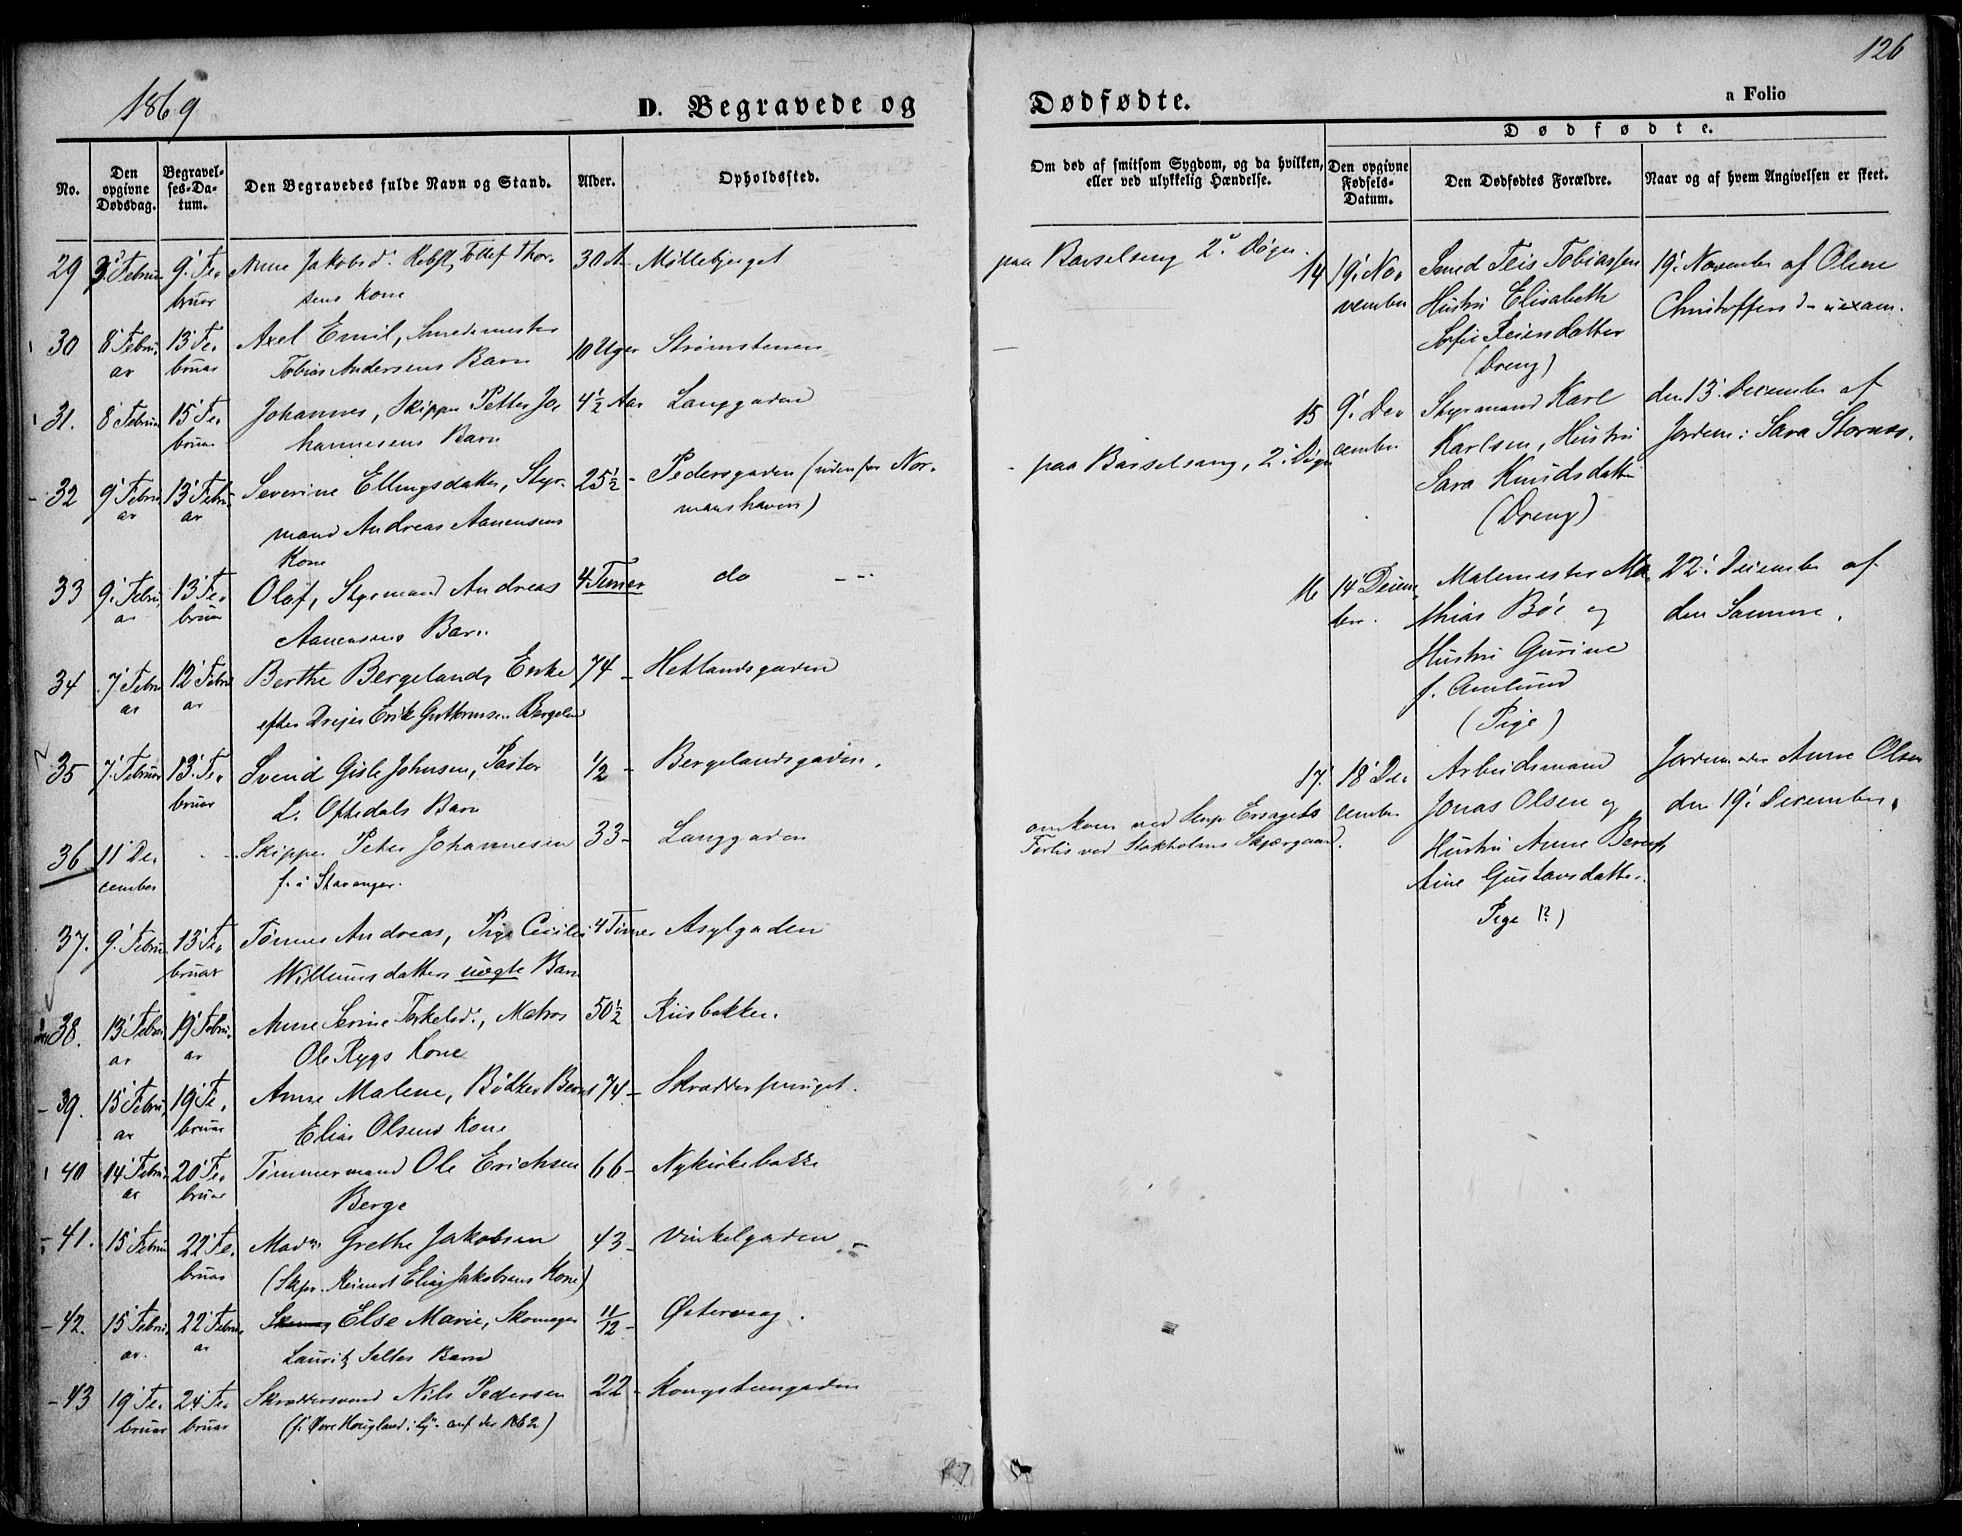 1869
D. Begravede og
No.
Den opgivne Dødsdag.
Begravelses-Datum.
Den Begravedes fulde Navn og Stand.
Alder.
Opholdssted.
29 3' Februar 9' Februar Anne Jakobsd. Tollef Thorsens Kone 30 A Møllebjerget
30 8' Februar 13' Februar Axel Emil, Smedemester
Tobias Andersens Barn 10 Uger Strømstenen
31. 8' Februar 15' Februar Johannes, Skipper Petter Jo-
hannesens Barn 4½ Aar Langgaden
32 9' Februar 13' Februar Severine Ellingsdatter, Styr-
mand Andreas Aanensens
Kone 25½ - Pedersgaden (uden for Nor-
manshaven)
33 9' Februar 13' Februar Olaf, Styrmand Andreas
Aanensens Barn 4 Timer do
34 7' Februar 12' Februar Berthe Bergeland, Enke
efter Drejer Erik Guttormsen Bergeland 74 - Hetlandsgaden
35 7' Februar 13' Februar Svend Gisle Johnsen, Pastor
L. Oftedals Barn 1/2 - Bergelandsgaden.
36 11' December Skipper Peter Johannesen
f. i Stavanger. 33 - Langgaden
37. 9' Februar 13' Februar Tønnes Andreas, Pige Cecilie
Willumsdatters uægte Barn 4 Timer Asylgaden
38. 13' Februar 19' Februar Anne Serine Torkelsd., Matros
Ole Rygs Kone 50½ Riisbakken.
39. 15' Februar 19' Februar Anne Malene, Bødker Bernt
Elias Olsens Kone 74 - Skrædderspringet.
40 14' Februar 20' Februar Tømmermand Ole Erichsen
Berge 66 - Nykirkebakke
41. 15' Februar 22' Februar Mad. Grethe Jakobsen
(Skpr. Reinert Elias Jakobsens Kone) 43 - Vinkelgaden
42. 15' Februar 22' Februar Else Marie, Skomager
Lauritz Saltes Barn 11/12 - Østervaag.
43 19' Februar 24' Februar Skræddersvend Nils Pedersen 22 - Kongsteengaden
126
Dødfødte.
a Folio
Om død af smitsom Sygdom, og da hvilken, eller ved ulykkelig Hændelse.
Dødfødte.
Den opgivne Fødsels-Datum.
Den Dødfødtes Forældre.
Naar og af hvem Angivelsen er skeet.
paa Barselseng 2' Døgn.
paa Barselseng, 2' Døgn
omkom ved
Forlis ved Stokholms Skjærgaard.
14 19' November Smed Teis Tobiassen
Hustru Elisabeth
Sofie Reiersdatter
(Dreng) 19' November af Olene
Christoffersd - uexam.
15 9' December Styrmand Karl
Karlsen, Hustru
Sara Knudsdatter
(Dreng) den 13' December af
Jordem: Sara Stornæs.
16 14' December Malemester Ma-
thias Bøe og
Hustru Gurine
f. Amlund
(Pige) 22' December af
den Samme.
17. 18' December Arbeidsmand
Jonas Olsen og
Hustru Anne Berent-
ine Gustavsdatter.
Pige (?) Jordemoder Anne Olsen
den 19' December.